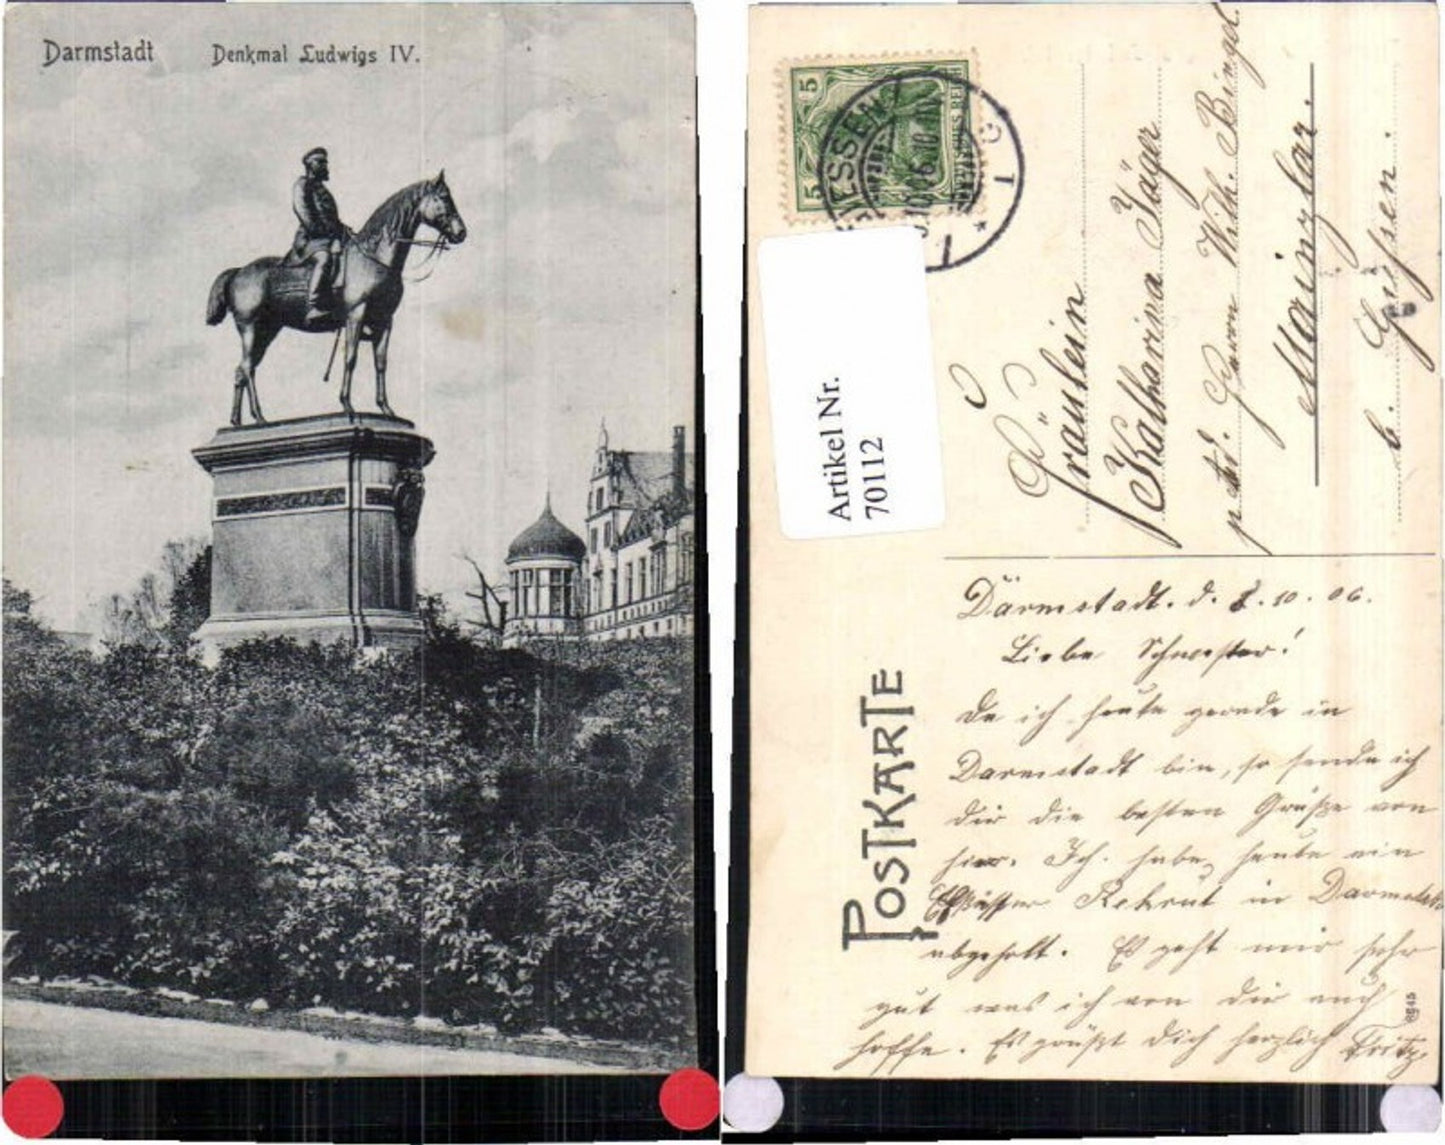 Darmstadt Denkmal Ludwigs IV.
5 5
GIESSEN
DEUTSCHES REICH
Artikel Nr.
70112
Fräulein
Katharina Jäger
p. Adr. Herrn Wilh. Bingel.
Mainzlar.
b. Gießen.
POSTKARTE
Darmstadt. d. 8.10.06.
Liebe Schwester!
Da ich heute gerade in
Darmstadt bin, so sende ich
dir die besten Grüße von
hier. Ich habe heute ein
Rekrut in Darmstadt
abgeholt. Es geht mir sehr
gut was ich von dir auch
hoffe. Es grüßt dich herzlich Fritz.